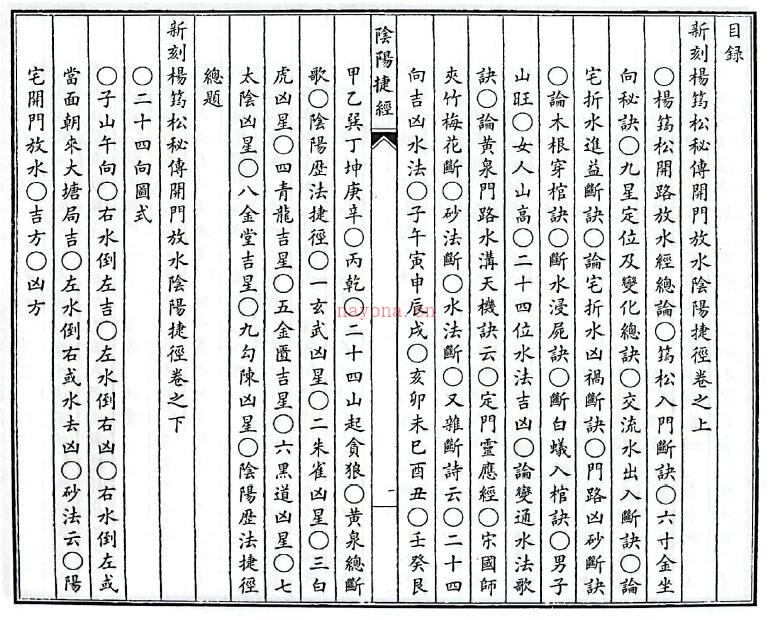 目錄
新刻楊筠松秘傳開門放水陰陽捷徑卷之上
○楊筠松開路放水經總論○筠松入門斷訣○六寸金坐
向秘訣○九星定位及變化總訣○交流水出入斷訣○論
宅折水進益斷訣○論宅折水凶禍斷訣○門路凶砂斷訣
○論木根穿棺訣○斷水浸屍訣○斷白蟻入棺訣○男子
山旺○女人山高○二十四位水法吉凶○論變通水法歌
訣○論黃泉門路水溝天機訣云○定門靈應經○宋國師
夾竹梅花斷○砂法斷○水法斷○又雜斷詩云○二十四
向吉凶水法○子午寅申辰戌○亥卯未巳酉丑○壬癸艮
陰陽捷經
一
甲乙巽丁坤庚辛○丙乾○二十四山起貪狼○黃泉總斷
歌○陰陽歷法捷徑○一玄武凶星○二朱雀凶星○三白
虎凶星○四青龍吉星○五金匱吉星○六黑道凶星○七
太陰凶星○八金堂吉星○九勾陳凶星○陰陽歷法捷徑
總題
新刻楊筠松秘傳開門放水陰陽捷徑卷之下
○二十四向圖式
○子山午向○右水倒左吉○左水倒右凶○右水倒左或
當面朝來大塘局吉○左水倒右或水去凶○砂法云○陽
宅開門放水○吉方○凶方
nayona.cn